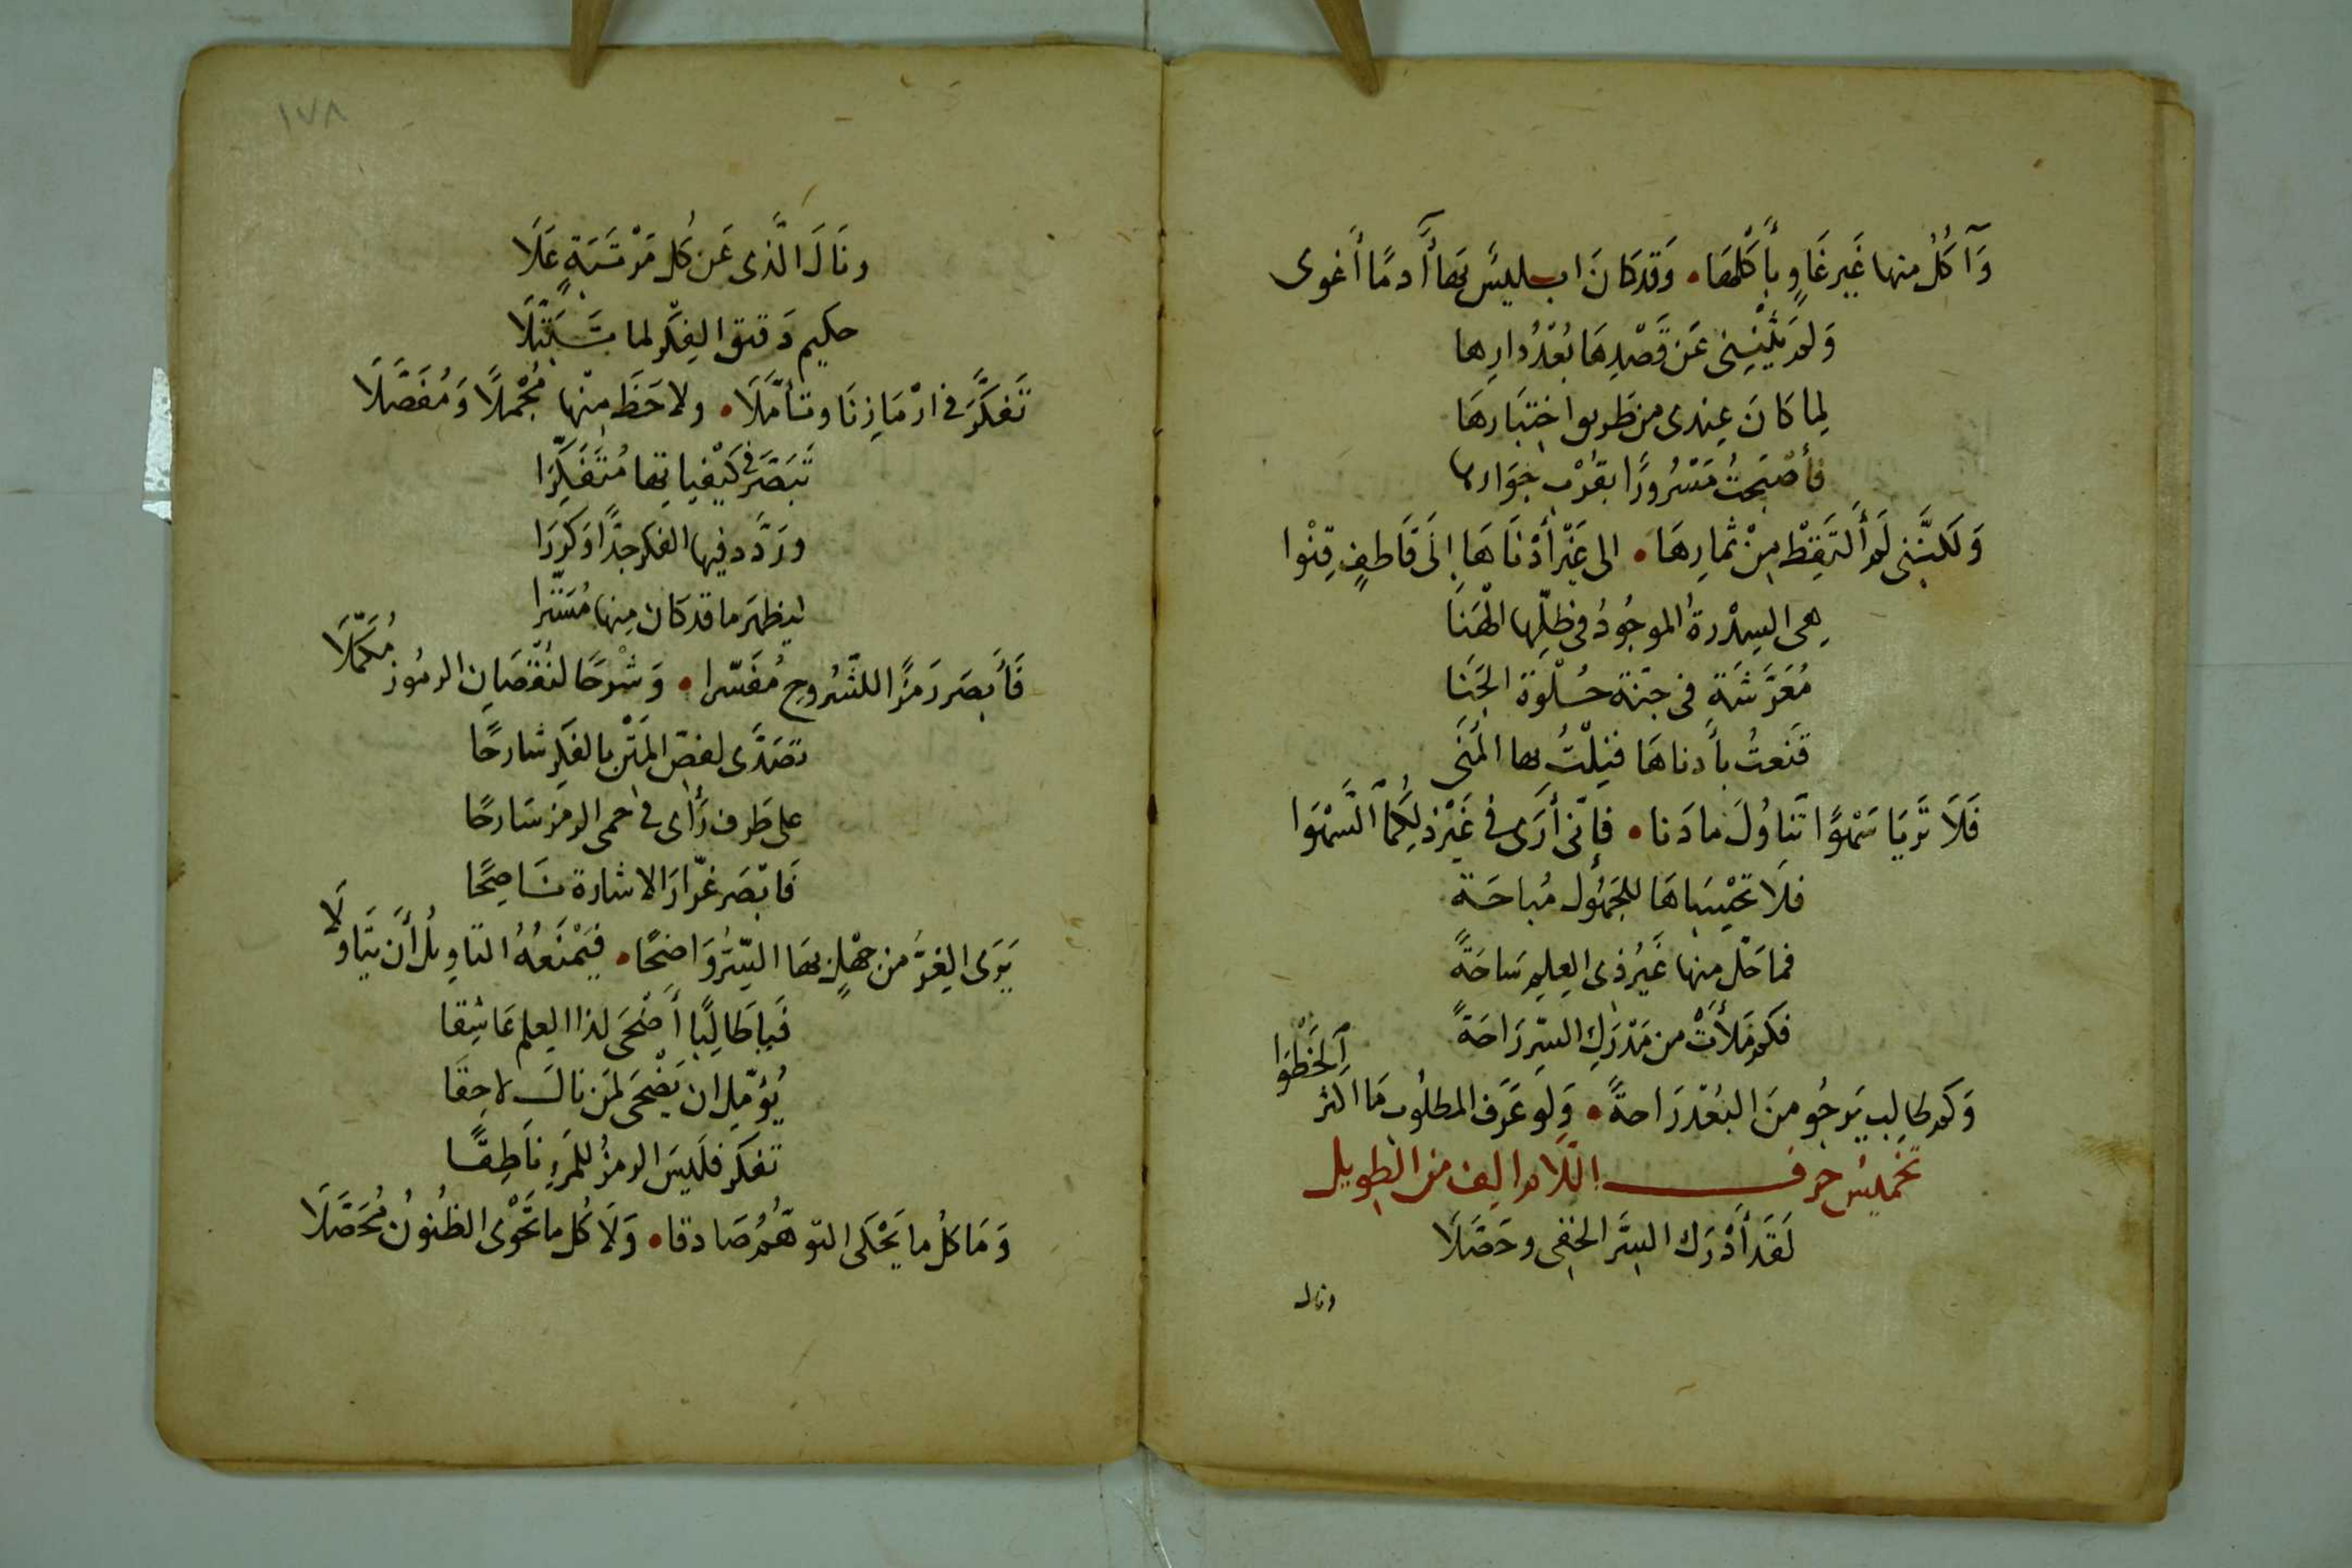 وَآكُلُ منها غَيرَ غَاوٍ بأَكْلِهَا • وَقَد كَانَ ابليسٌ بهَا أَدمًا أَغوى
وَلَم يَثْنِنِى عَن قَصْدِهَا بُعْدُ دارِها
لِما كَانَ عِندى من طَريق اختِبَارهَا
فأصْبَحتُ مَسْرُورًا بقُرْبِ جِوَارها
وَلكنَّنى لَم أَلتَقِطْ مِنْ ثمارِهَا • الى غَيْرِ أدْنَاهَا إلَى قَاطفٍ قِنْوا
هى السِدْرةُ الموجُودُ فى ظلِّها الهَنَا
مُعَرَّشَة فى جنّة حُلْوة الجَنَا
قَنَعتُ بأَدناهَا فنِلْتُ بها المُنَى
فَلَا تَريَا سَهْوًا تَناوُلَ ما دَنا • فإنّى أرَى فى غَيْر ذلِكُمَا السَّهْوَا
فلَا تحْسِبَاهَا للجَهُول مُباحَة
فما حَلّ منها غَيرُ ذى العِلمِ سَاحَةً
فكم مَلأَتْ من مَدْرَكِ السِّرِ رَاحَةً
وَكم طالِبٍ يَرجُو منَ البُعْد رَاحةً • وَلو عَرَفَ المطلُوبَ مَا اكثر الخَطْوَا
تخميسُ حرف اللام الف من الطويل
لَقَد أَدْرَك السِرَّ الخفى وحَصَّلَا
ونال
١٧٨
ونَالَ الَّذى عَن كُل مَرْتَبَةٍ عَلَا
حكيم دَقيق الفِكْر لما تَبَتَّلَا
تَفكَّرَ فى ارْمَازِنَا وتأمَّلَا • ولاحَظَ مِنْها مُجْمَلًا وَمُفَصَّلَا
تَبَصَّرَ فى كَيْفياتِها مُتَفَكِّرَا
وردَّدَ فيها الفكر جدًّا وَكرّرَا
ليَظهَرَ ما قد كان مِنها مُسَتّرا
فَأَبصَر رَمزًا للشُّروح مُفَسّرا • وَشَرْحًا لنُقْصَانِ الرمُوز مُكَمِّلَا
تصَدَّى لفضّ المَتْن بالفكر شارحًا
على طَرف رَأى فى حمى الرمز سَارحًا
فَابْصَر غرّارَ الاشارة نَاصِحًا
يَرَى الغِرُّ من جهْلٍ بهَا السِّرَ وَاضِحًا • فيَمْنَعُهُ التاويلُ أَن يتَاوّلَا
فَيا طَالِبًا أضْحَى لذا العِلم عَاشِقا
يُؤمِّل ان يَضْحَى لمَن نالَ لاحِقَا
تفكّر فلَيسَ الرمزُ للمَرءِ نَاطِقًا
وَمَا كلُ ما يَحْكَى التوهُّمُ صَادقا • وَلَا كُل ما تَحْوْى الظُنونُ مُحَصَّلَا